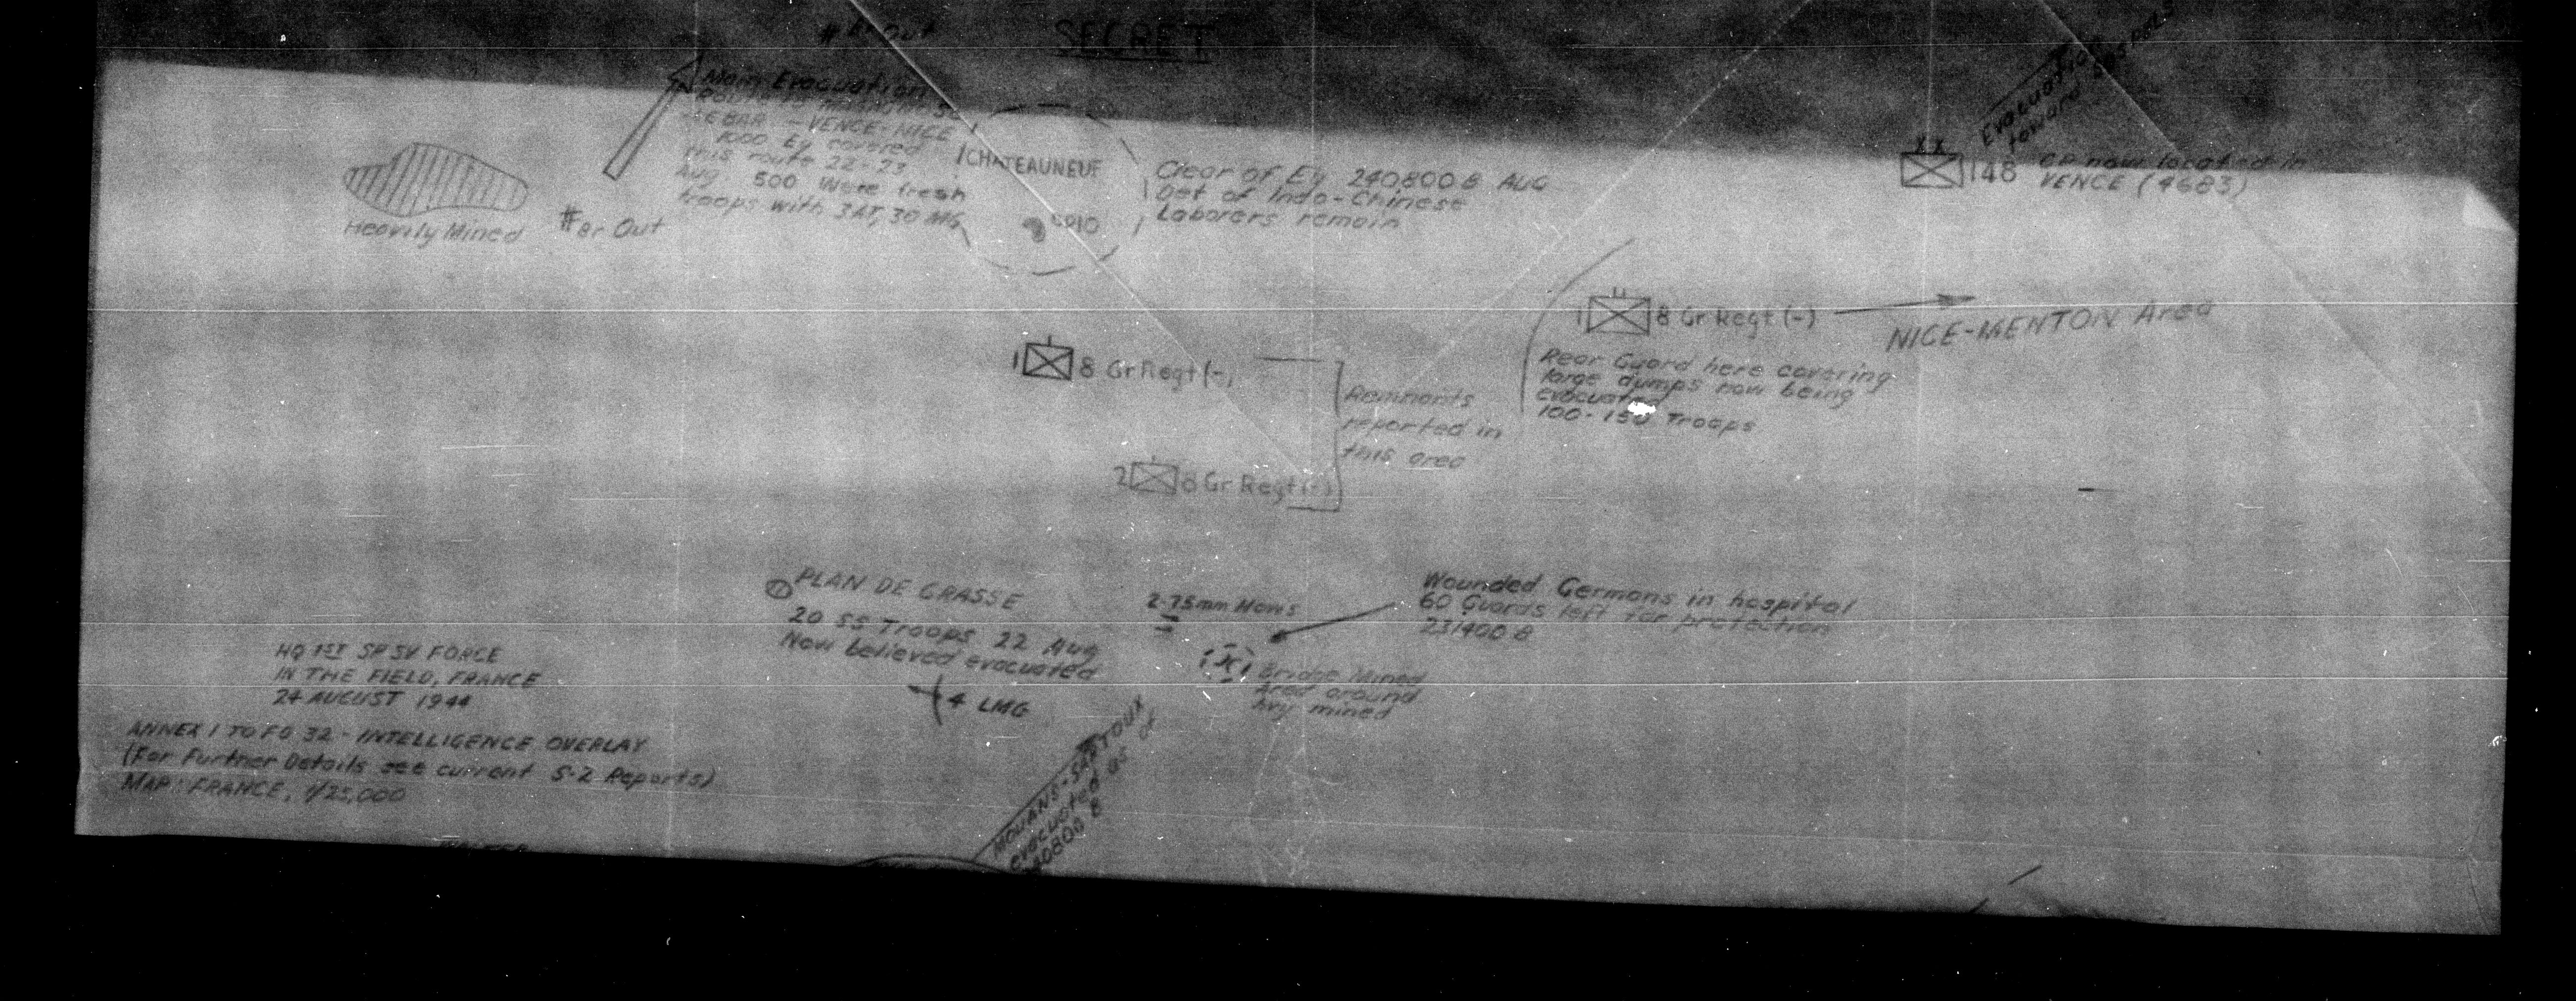 SECRET
# Br Out
Main Evacuation
Route is through St
- VENCE - NICE
1000 Ey covered
this route 22-23
Aug. 500 Were fresh
troops with 3AT, 30 MG
CHATEAUNEUF
OPIO
Clear of Ey 240800B AUG
Det of Indo-Chinese
Laborers remain
Evacuation
toward
XX
148
CP now located in
VENCE (4683)
Heavily Mined
# Br Out
1 8 Gr Regt (-)
NICE-MENTON Area
Rear Guard here covering
large dumps now being
evacuated
100-150 Troops
1 8 Gr Regt (-)
Remnants
reported in
this area
2 8 Gr Regt (-)
PLAN DE GRASSE
20 SS Troops 22 Aug
Now believed evacuated
4 LMG
2-75mm Hows
Wounded Germans in hospital
60 Guards left for protection
231400 B
Bridge Mined
Area around
hvy mined
MOUANS-SARTOUX
evacuated as of
240800 B
HQ 1ST SP SV FORCE
IN THE FIELD, FRANCE
24 AUGUST 1944
ANNEX 1 TO FO 32 - INTELLIGENCE OVERLAY
(For Further Details see current S-2 Reports)
MAP: FRANCE, 1/25,000